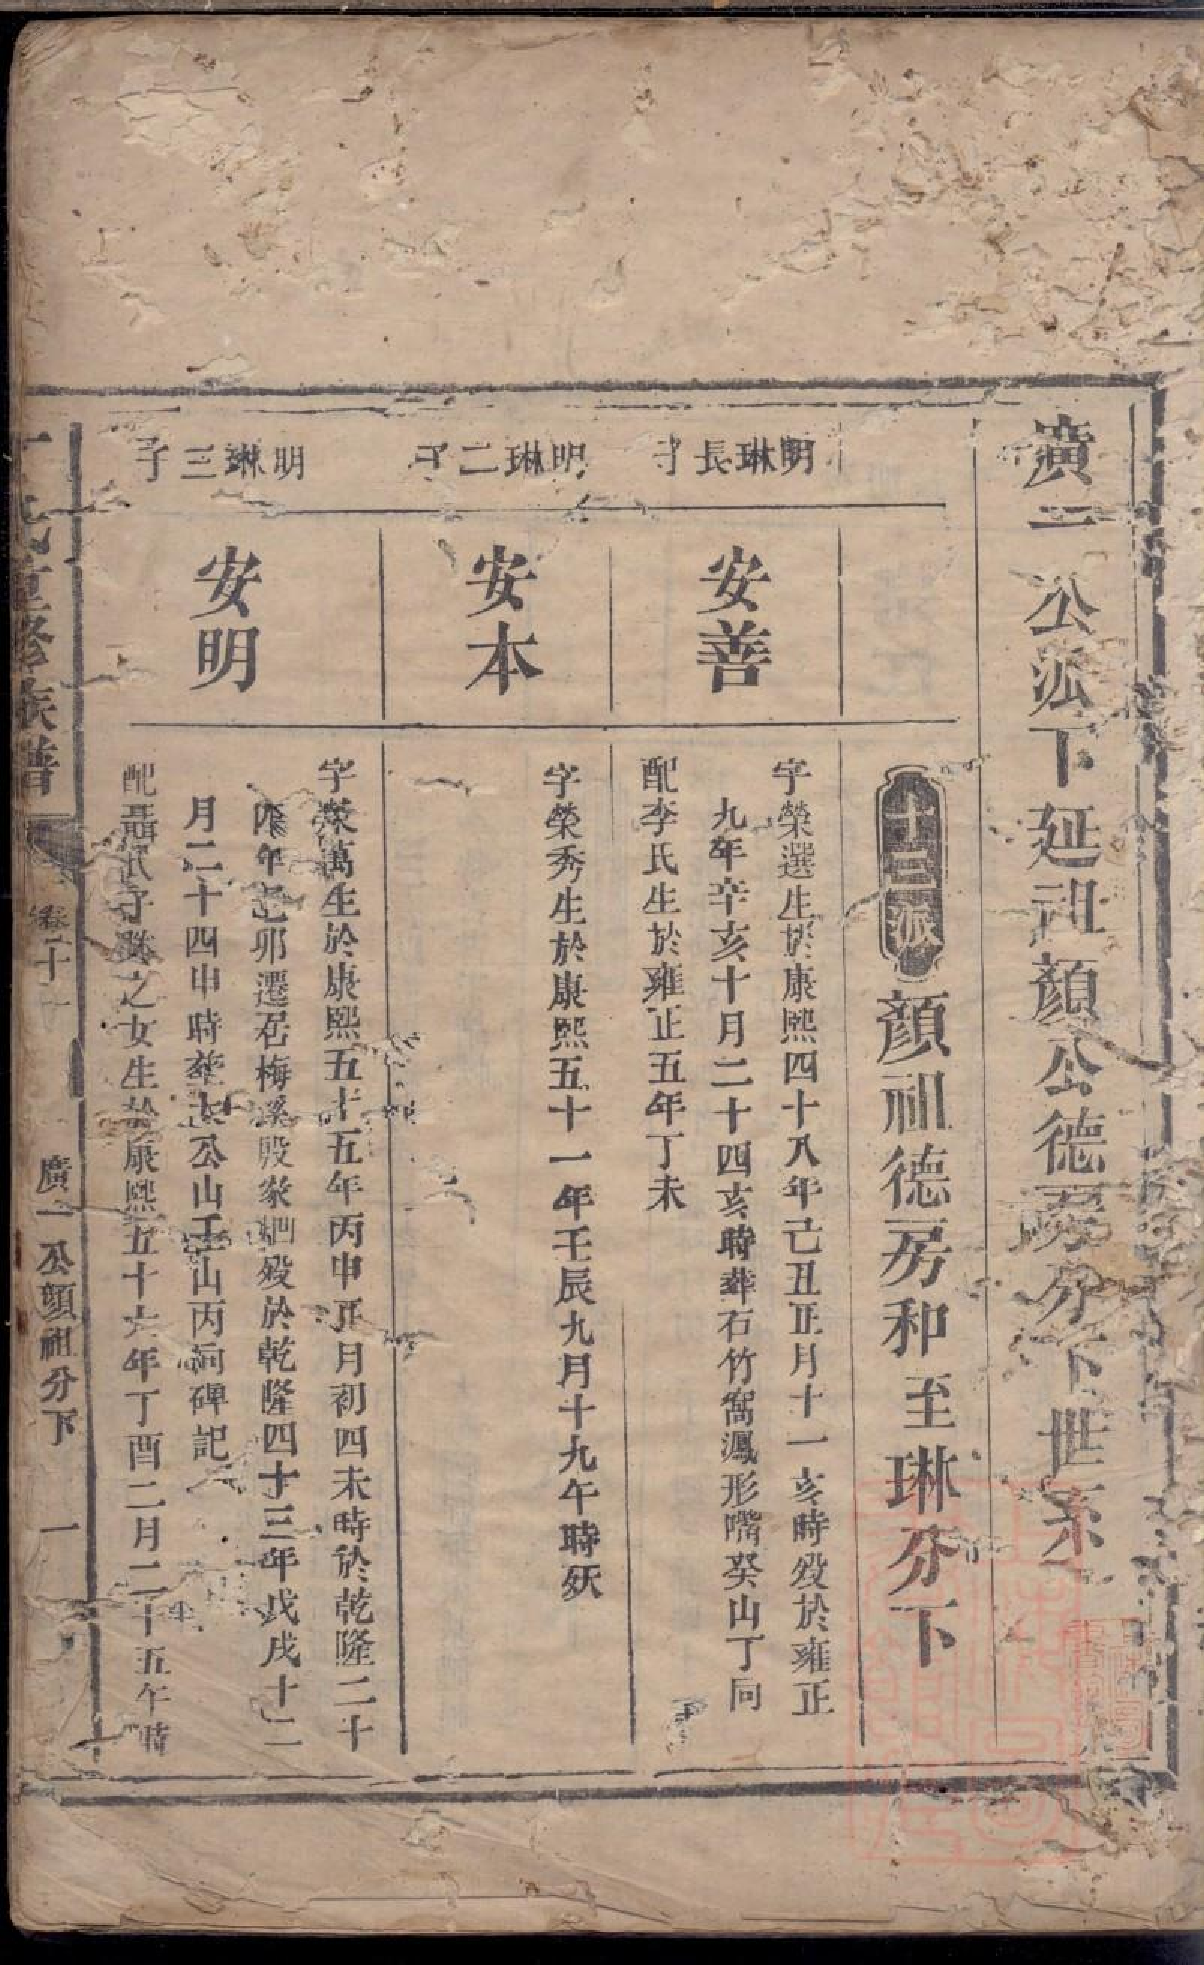 廣一公派下延祖顏公德房分下世系
十三派
顏祖德房和至琳分下
明琳長子
安善
字榮選生於康熙四十八年己丑正月十一亥時歿於雍正
九年辛亥十月二十四亥時葬石竹窩鳳形嘴癸山丁向
配李氏生於雍正五年丁未
明琳二子
安本
字榮秀生於康熙五十一年壬辰九月十九午時殀
明琳三子
安明
字榮萬生於康熙五十五年丙申正月初四未時於乾隆二十
四年己卯遷居梅溪殷家 歿於乾隆四十三年戊戌十二
月二十四申時葬 公山壬山丙向碑記
配聶氏子 之女生於康熙五十六年丁酉二月二十五午時
氏重修族譜
卷二十
廣一公顏祖分下
一